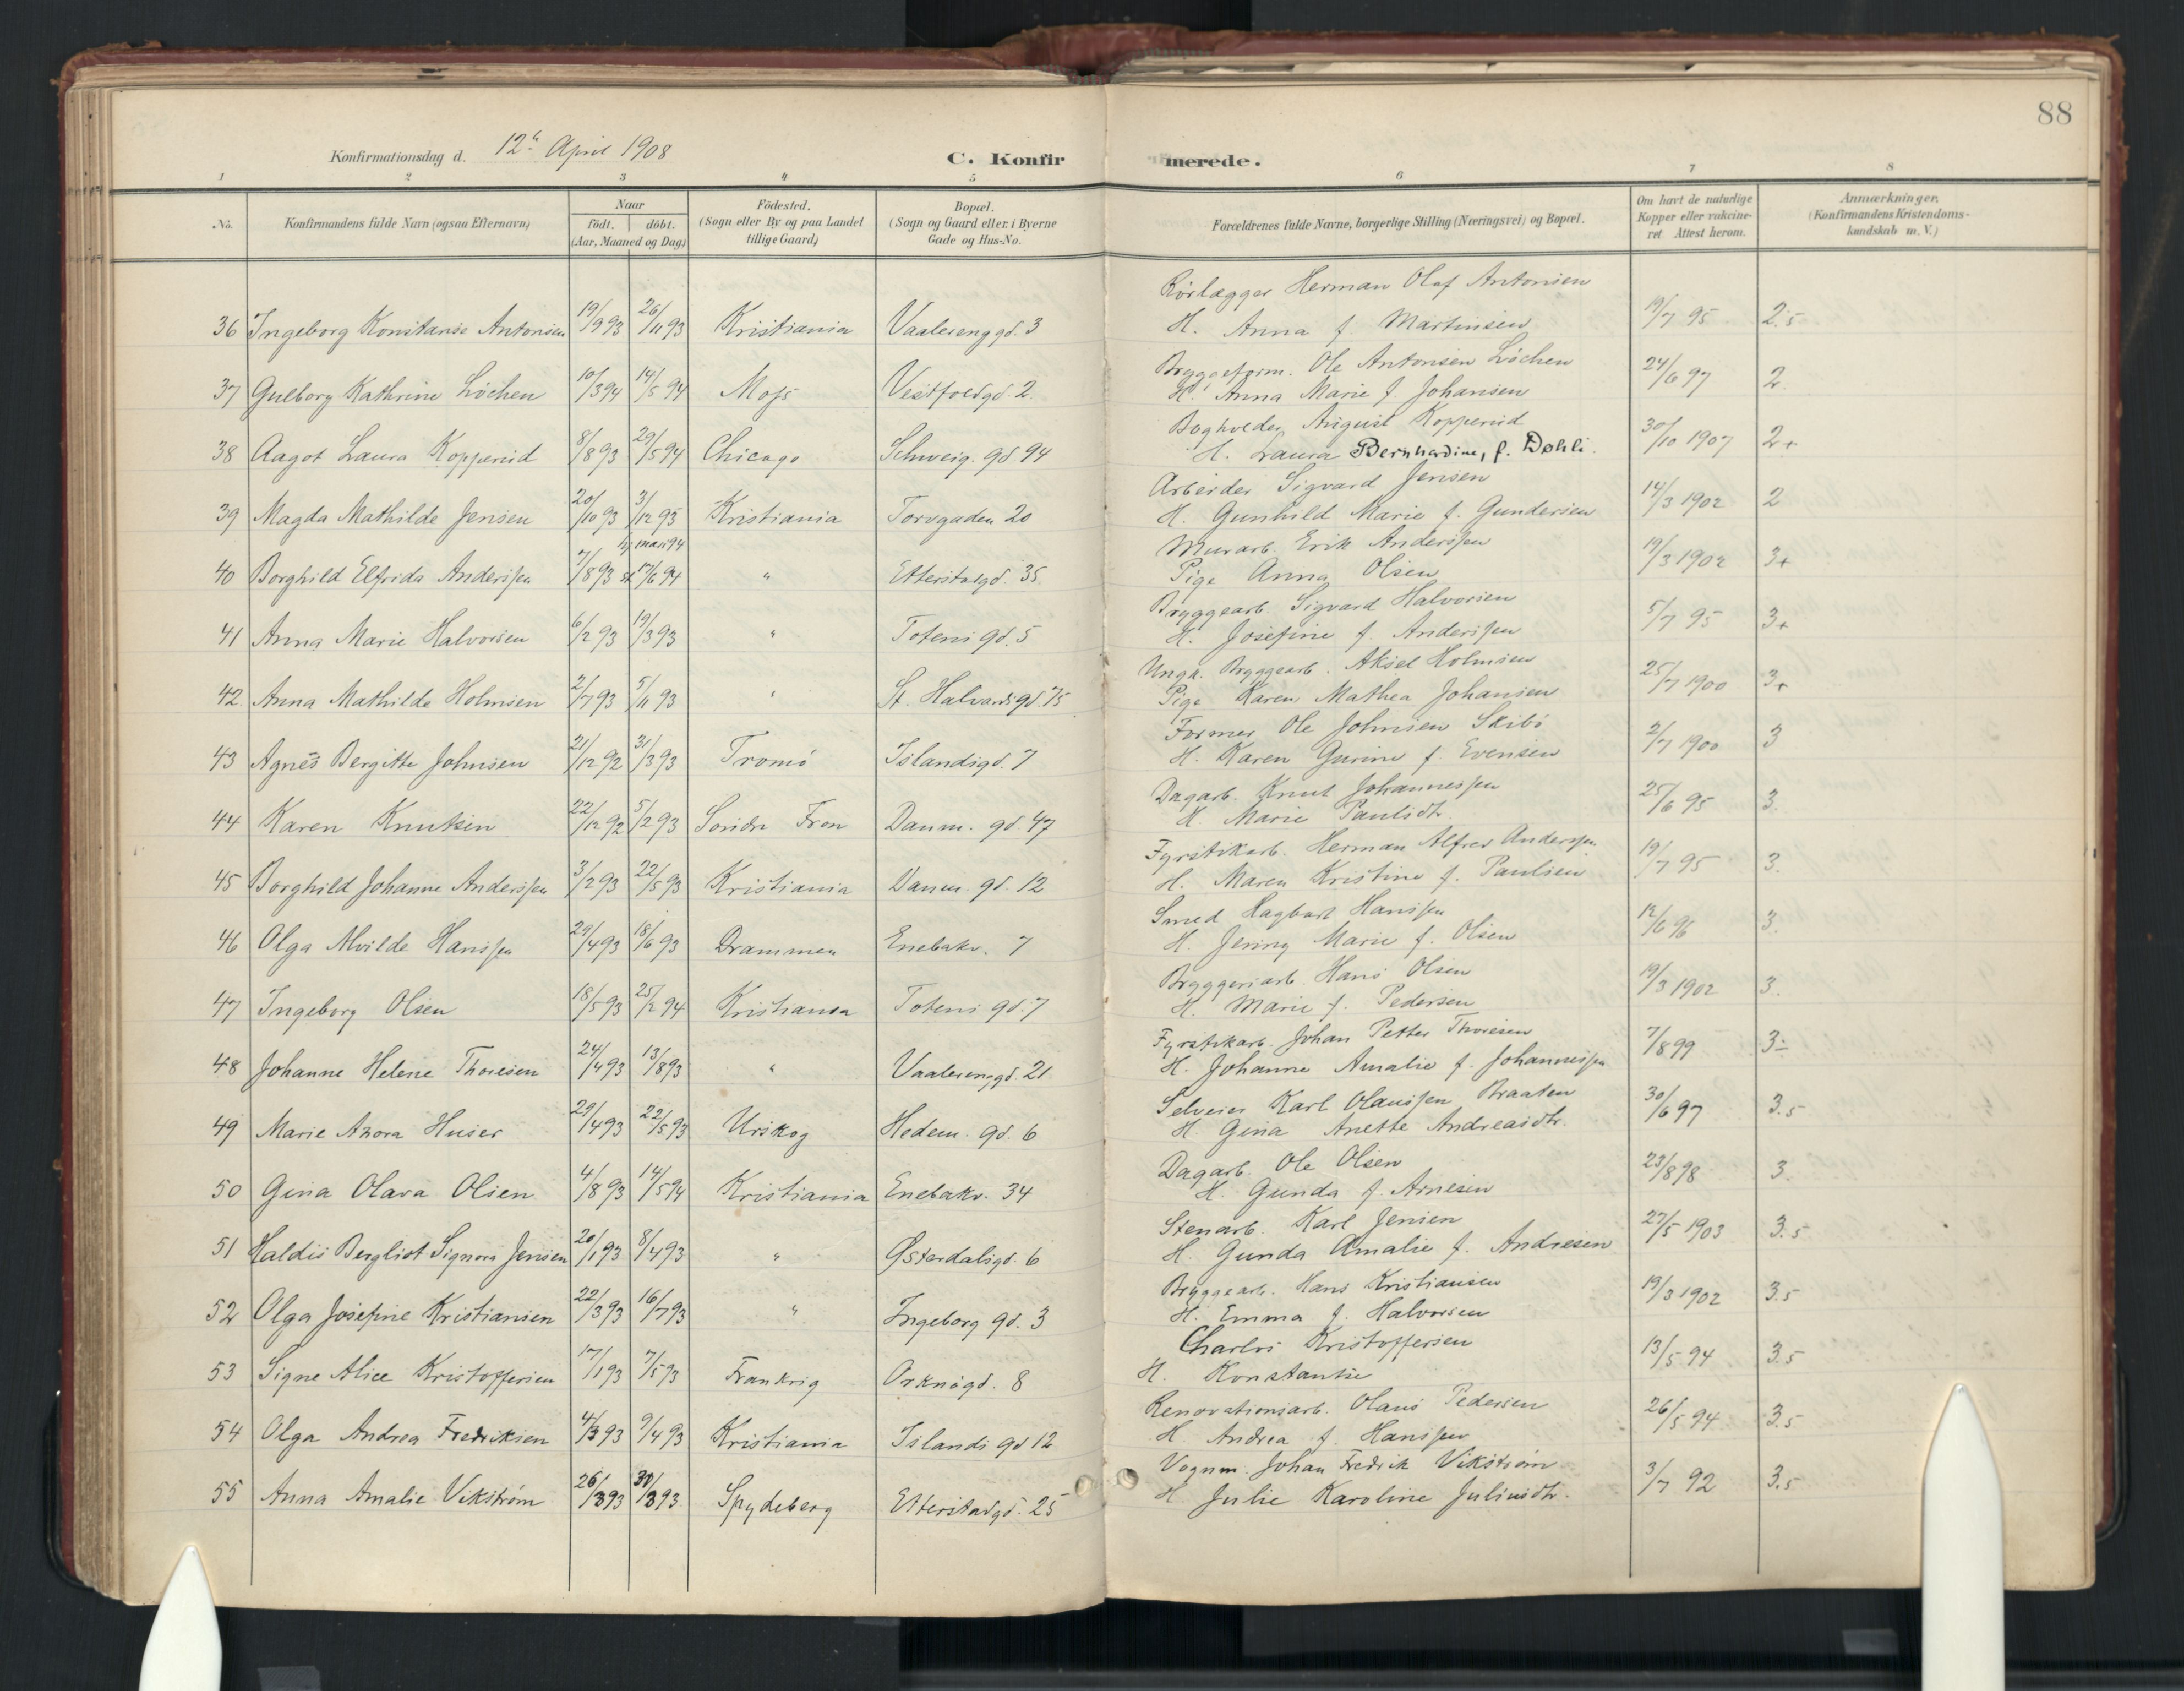 88
Konfirmationsdag d. 12te April 1908 C. Konfirmerede.
1 2 3 4 5 6 7 8
No. Konfirmandens fulde Navn (ogsaa Efternavn) Naar födt. döbt. (Aar, Maaned og Dag) Födested. (Sogn eller By og paa Landet tillige Gaard) Bopæl. (Sogn og Gaard eller i Byerne Gade og Hus-No. Forældrenes fulde Navne, borgerlige Stilling (Næringsvei) og Bopæl. Om havt de naturlige Kopper eller vakcineret Attest herom. Anmærkninger. (Konfirmandens Kristendomskundskab m. V.)
Rörlægger Herman Olaf Antonsen
36 Ingeborg Konstanse Antonsen 19/9 93 26/11 93 Kristiania Vaalerenggd. 3 H. Anna f. Martinsen 19/7 95 2.5
Bryggeform. Ole Antonsen Löchen
37 Gulborg Kathrine Löchen 10/3 94 14/5 94 Moss Vestfoldgd. 2. H. Anna Marie f Johansen 24/6 97 2.
Bogholder August Kopperud
38 Aagot Laura Kopperud 8/8 93 29/5 94 Chicago Schweig. gd 94 H. Laura Bernhardine, f. Døhli. 30/10 1907 2+
Arbeider Sigvard Jensen
39 Magda Mathilde Jensen 20/10 93 3/12 93 Kristiania Torvgaden 20 H. Gunhild Marie f. Gundersen 14/3 1902 2
Murarb. Erik Anderssen
40 Borghild Elfrida Anderssen 7/8 93 hj. mars 94 st 17/6 94 " Etterstadgd. 35 Pige Anna Olsen 19/3 1902 3+
Bryggearb. Sigvard Halvorsen
41 Anna Marie Halvorsen 6/2 93 19/3 93 " Totens gd. 5 H. Josefine f. Anderssen 5/7 95 3+
Ungk. Bryggearb. Aksel Holmsen
42. Anna Mathilde Holmsen 2/7 93 5/11 93 " St. Halvards gd. 75 Pige Karen Mathea Johansen 25/7 1900 3+
Former Ole Johnsen Skibö
43 Agnes Bergitte Johnsen 21/12 92 31/3 93 Tromö Islandsgd. 7 H. Karen Gurine f. Evensen 2/7 1900 3
Dagarb. Knut Johannessen
44 Karen Knutsen 22/12 92 5/2 93 Söndre Fron Danm. gd. 47 H. Marie Paulsdtr. 25/6 95 3.
Fyrstikarb. Herman Alfred Anderssen
45 Borghild Johanne Anderssen 3/2 93 22/5 93 Kristiania Danm. gd. 12 H. Maren Kristine f. Paulsen 19/7 95 3.
Smed Hagbart Hanssen
46 Olga Alvilde Hanssen 29/4 93 18/6 93 Drammen Enebakv. 7 H. Jenny Marie f. Olsen 12/6 96 3.
Bryggeriarb. Hans Olsen
47 Ingeborg Olsen 18/5 93 25/2 94 Kristiania Totens gd. 7 H. Marie f. Pedersen 19/3 1902 3.
Fyrstikarb. Johan Petter Thoresen
48 Johanne Helene Thoresen 24/4 93 13/8 93 " Vaalerenggd. 21 H. Johanne Amalie f. Johannessen 7/8 99 3÷
Selveier Karl Olaussen Braaten
49 Marie Azora Huser 29/4 93 22/5 93 Urskog Hedem. gd. 6 H. Gina Anette Andreasdtr. 30/6 97 3.5
Dagarb. Ole Olsen
50 Gina Olava Olsen 4/8 93 14/5 94 Kristiania Enebakv. 34 H. Gunda f. Arnesen 23/8 98 3.
Stenarb. Karl Jensen
51 Haldis Bergliot Signora Jensen 20/1 93 8/4 93 " Østerdalsgd. 6 H. Gunda Amalie f. Andresen 27/5 1903 3.5
Bryggearb. Hans Kristiansen
52 Olga Josefine Kristiansen 22/3 93 16/7 93 " Ingeborg gd. 3 H. Emma f. Halvorsen 19/3 1902 3.5
Charles Kristoffersen
53 Signe Alice Kristoffersen 17/1 93 7/5 93 Frankrig Orknögd. 8 H. Konstantse 13/5 94 3.5
Renovationsarb. Olaus Pedersen
54 Olga Andrea Fredriksen 4/3 93 9/4 93 Kristiania Islands gd 12 H. Andrea f. Hanssen 26/5 94 3.5
Vognm. Johan Fredrik Vikstrøm
55 Anna Amalie Vikstrøm 26/1 93 30/3 93 Spydeberg Etterstadgd. 25 H. Julie Karoline Juliusdtr. 3/7 92 3.5